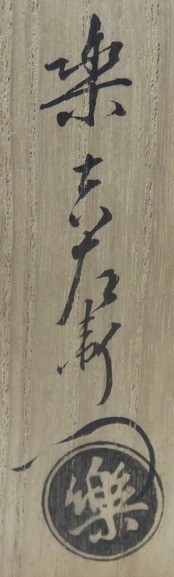 楽吉左衛門
樂